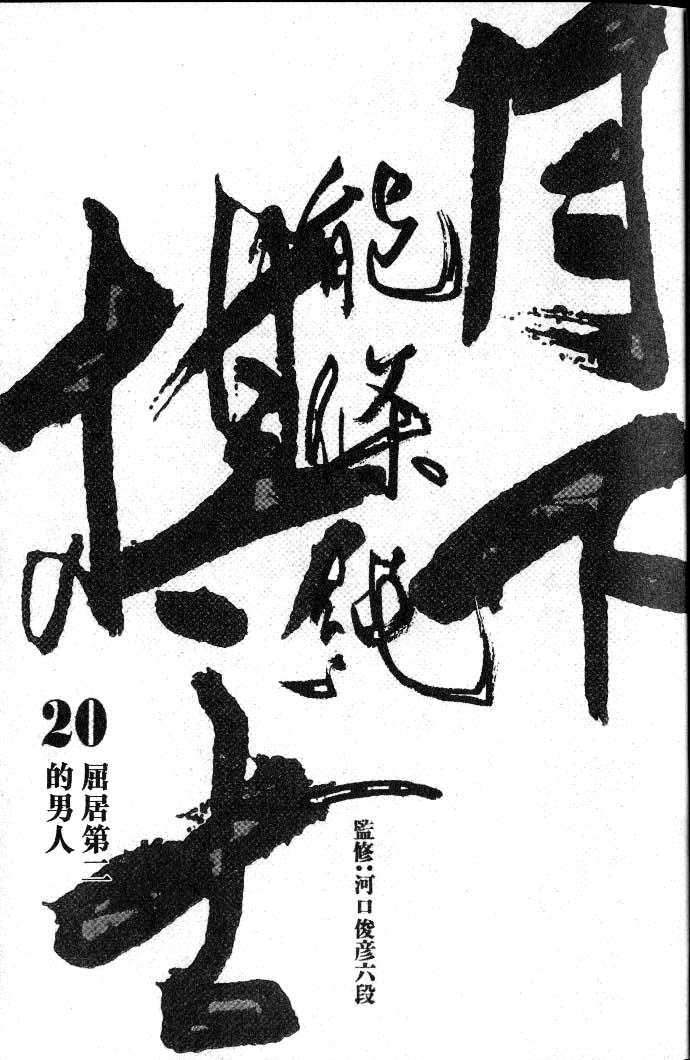 月下
棋士
能條純一
20
屈居第二
的男人
監修:河口俊彦六段